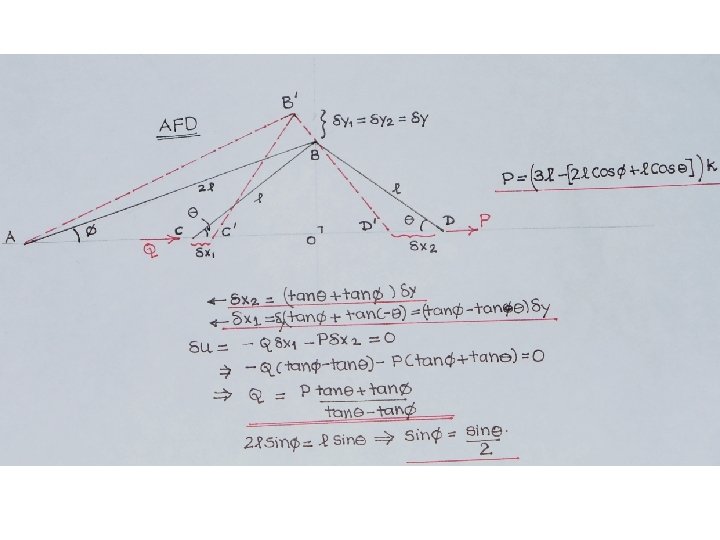 B'
AFD
} δy₁ = δy₂ = δy
B
2l
l
l
P = (3l - [2l cosφ + l cosθ]) k
A
φ
Q
C
θ
C'
δx₁
O
D'
θ
D
P
δx₂
← δx₂ = (tanθ + tanφ) δy
← δx₁ = (tanφ + tan(-θ) = (tanφ - tanθ) δy
δU = - Q δx₁ - P δx₂ = 0
⇒ - Q (tanφ - tanθ) - P (tanφ + tanθ) = 0
⇒ Q = P tanθ + tanφ
tanθ - tanφ
2l sinφ = l sinθ ⇒ sinφ = sinθ
2